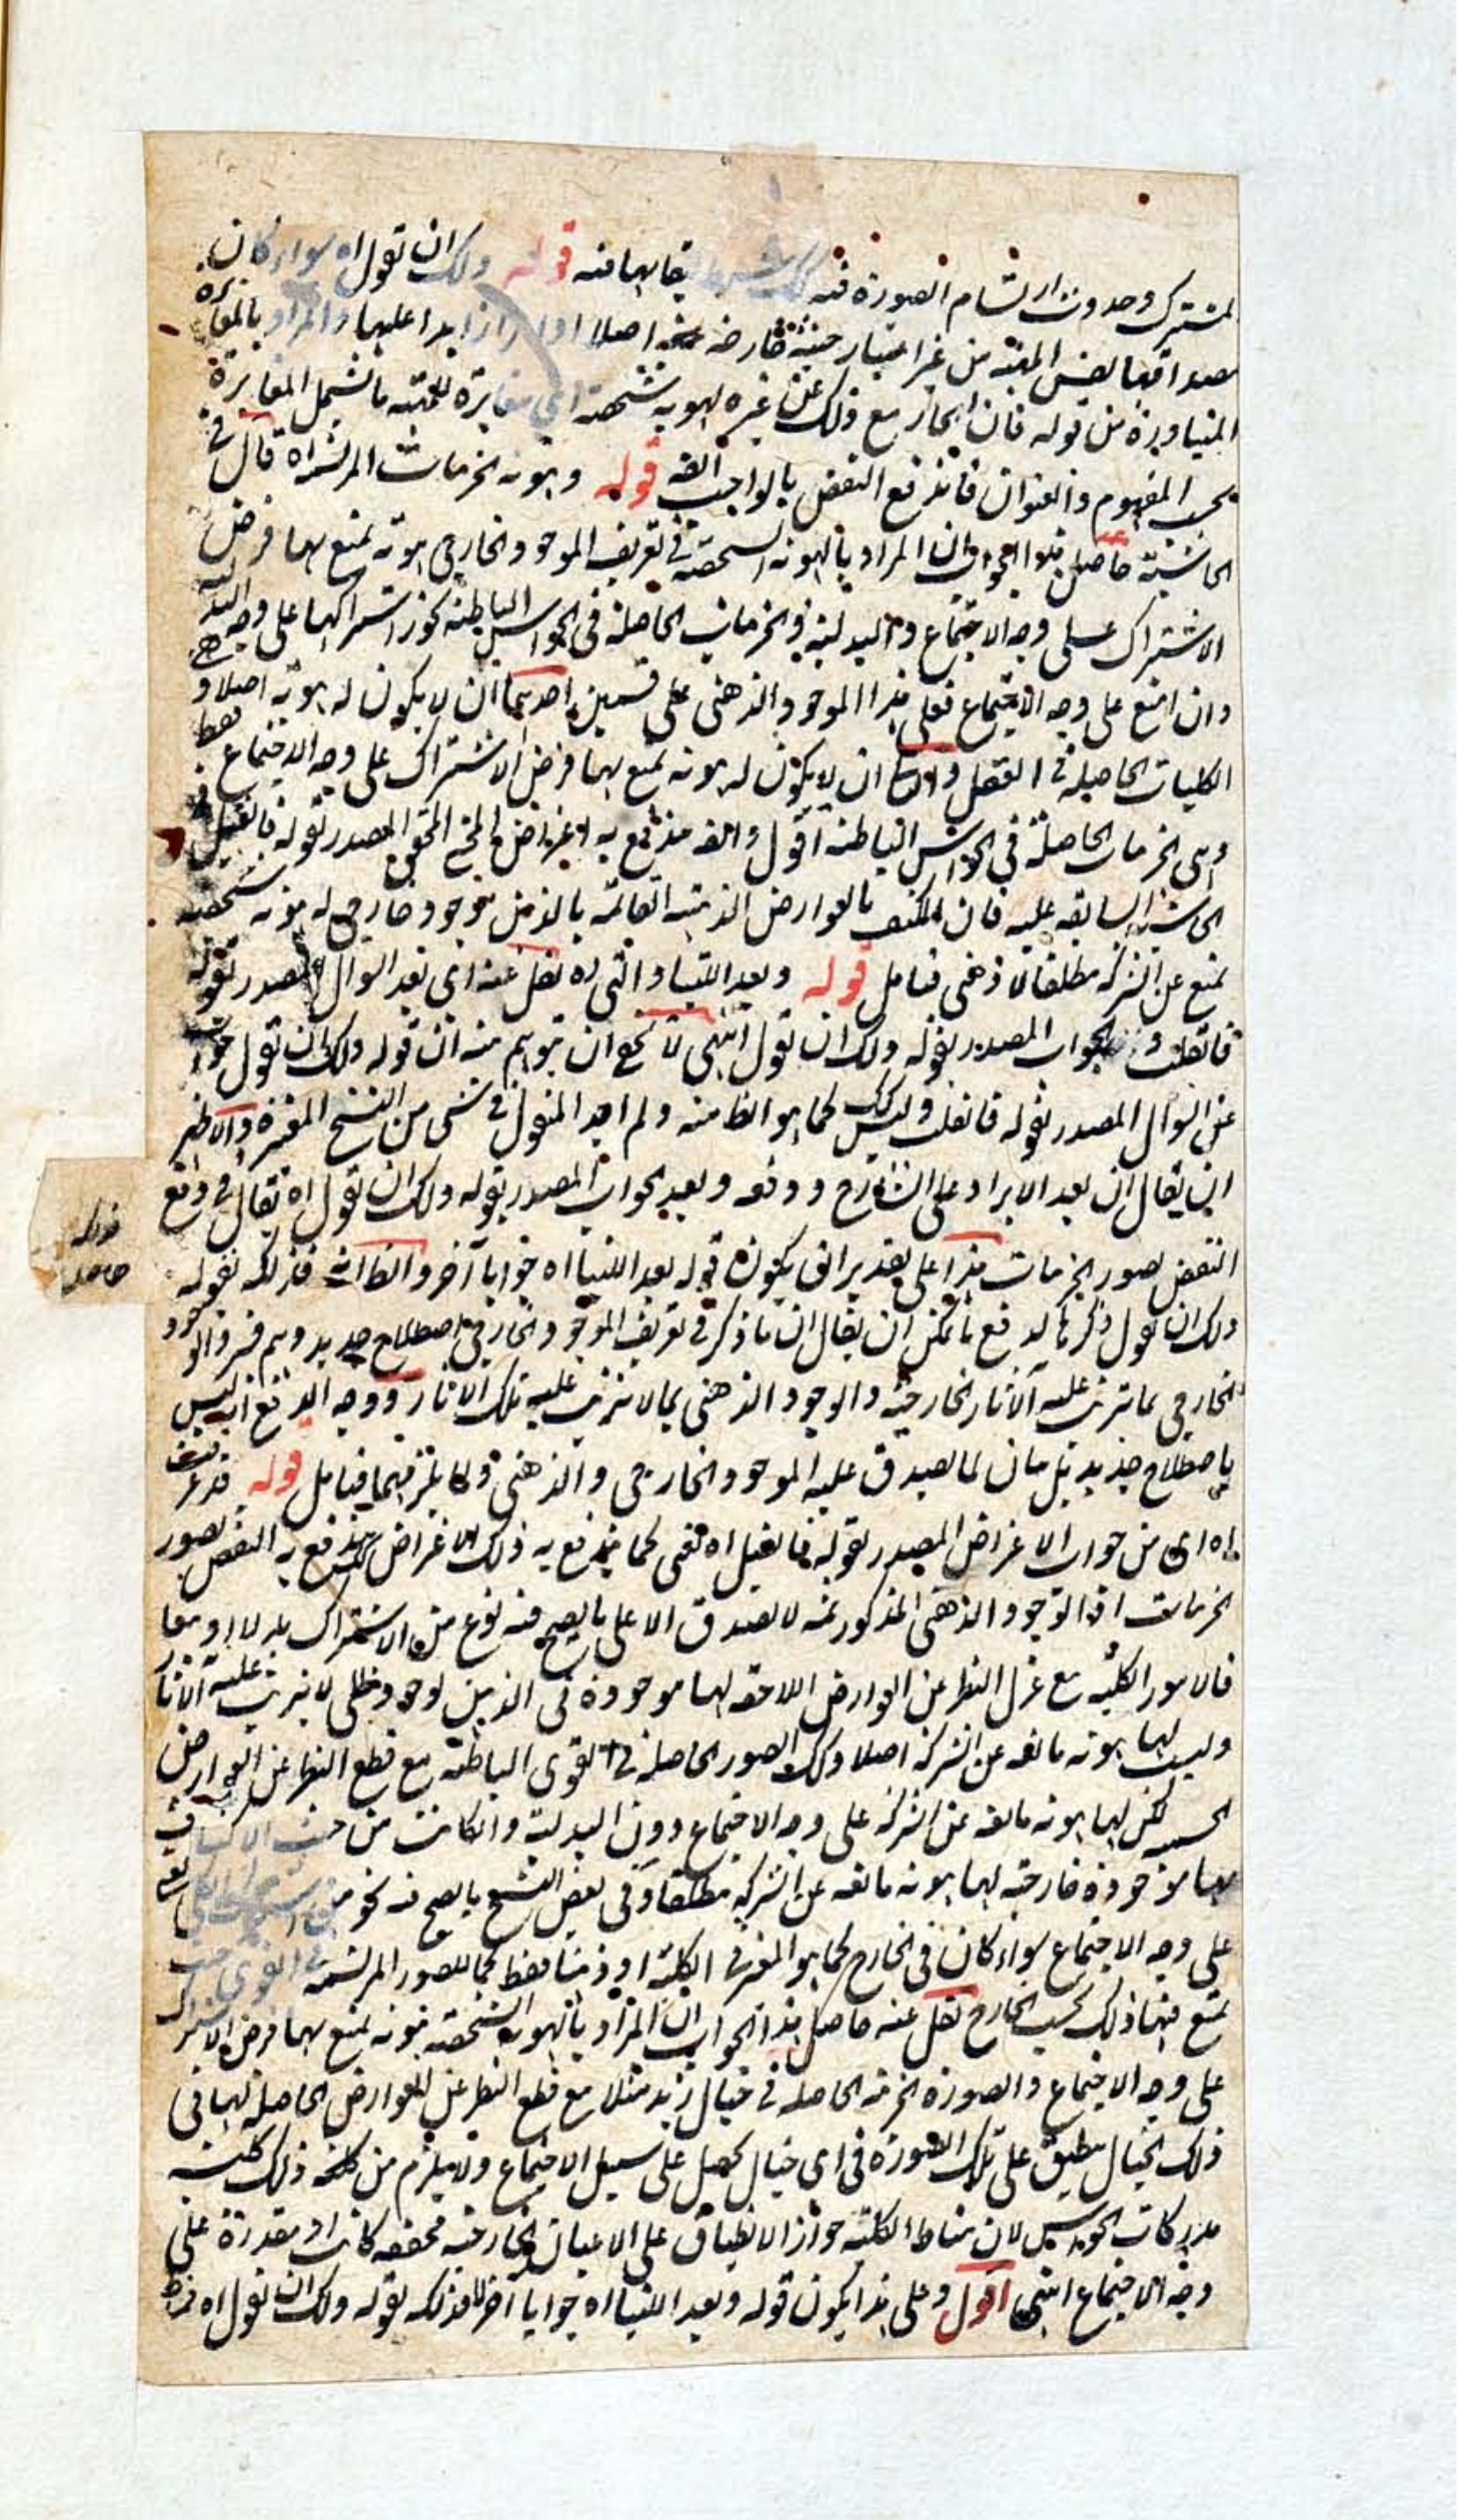 المشترك وحدوث ارتسام الصورة فيه بقائها فيه قوله ولك ان تقول اه سواء كان
مصداقها نفس المهية من غير اعتبار حيثية خارجة اصلا او امرا زايدا عليها والمراد بالمغايرة
المتبادرة من قوله فان امتاز مع ذلك عن غيره بهوية شخصية اى مغايرة للمهية ما يشمل المغايرة
بحسب المفهوم والعنوان فاندفع النقض بالواجب قوله وهوية الجزئيات المرتسمة اه قال فى
الحاشية حاصل هذا الجواب ان المراد بالهوية الشخصية فى تعريف الموجود الخارجى هوية تمنع بها فرض
الاشتراك على وجه الاجتماع والبدلية والجزئيات الحاصلة فى الحواس الباطنة يجوز اشتراكها على وجه البدلية
وان امتنع على وجه الاجتماع فعلى هذا الموجود الذهنى على قسمين احدهما ان لا يكون له هوية اصلا وهى
الكليات الحاصلة فى العقل والثانى ان لا يكون له هوية تمنع بها فرض الاشتراك على وجه الاجتماع فقط
وهى الجزئيات الحاصلة فى الحواس الباطنة اقول وايضا يندفع به اعتراض المحشى المحقق المصدر بقوله فان قيل فى
الحاشية السابقة عليه فان المكتنف بالعوارض الذهنية القائمة بالذهن موجود خارجى له هوية شخصية
تمنع عن الشركة مطلقا لا ذهنى فتامل قوله وبعد اللتيا والتى اه نقل عنه اى بعد السؤال المصدر بقوله
فان قلت والجواب المصدر بقوله ولك ان تقول انتهى لا يخفى ان يتوهم منه ان قوله ولك ان تقول جواب
عن السؤال المصدر بقوله فان قلت وليس كذلك كما هو الظاهر منه ولم اجد المنقول فى شئ من النسخ المعتبرة والاظهر
ان يقال ان بعد الايراد على الشارح ودفعه وبعد الجواب المصدر بقوله ولك ان تقول اه يقال فى دفع
النقض بصور الجزئيات هذا على تقدير ان يكون قوله بعد اللتيا اه جوابا آخر والظاهر انه فذلكه لقوله
ولك ان تقول ذكرها لدفع ما يمكن ان يقال ان ما ذكر فى تعريف الموجود الخارجى اصطلاح جديد وهم فسروا الوجود
الخارجى بما يترتب عليه الآثار الخارجية والوجود الذهنى بما لا يترتب عليه تلك الآثار ووجه الدفع انه ليس
باصطلاح جديد بل بيان لما يصدق عليه الموجود الخارجى والذهنى ولما يلزمهما فتامل قوله قد عرفت
اه اى من جواب الاعتراض المصدر بقوله فان قيل اه يعنى كما يندفع به ذلك الاعتراض كذلك يندفع به النقض بصور
الجزئيات اذ الوجود الذهنى المذكور ثمه لا يصدق الا على ما يصح فيه نوع من الاشتراك بدلا او معا
فالامور الكلية مع عزل النظر عن العوارض اللاحقة لها موجودة فى الذهن بوجود ظلى لا يترتب عليه الآثار
وليست لها هوية مانعة عن الشركة اصلا وكذلك الصور الحاصلة فى القوى الباطنة مع قطع النظر عن العوارض
لكن لها هوية مانعة عن الشركة على وجه الاجتماع دون البدلية وان كانت من حيث الاكتناف
بها موجودة خارجية لها هوية مانعة عن الشركة مطلقا وفى بعض النسخ ما يصح فيه نحو من
على وجه الاجتماع سواء كان فى الخارج كما هو المعتبر فى الكلية او ذهنا فقط كما للصور المرتسمة فى القوى حيث
تمتنع فيها ذلك بحسب الخارج نقل عنه حاصل هذا الجواب ان المراد بالهوية الشخصية هوية تمنع بها فرض الاشتراك
على وجه الاجتماع والصورة الجزئية الحاصلة فى خيال زيد مثلا مع قطع النظر عن العوارض الحاصلة لها فى
ذلك الخيال ينطبق على تلك الصورة فى اى خيال يحصل على سبيل الاجتماع ولا يلزم من ذلك كلية
مدركات الحواس لان مناط الكلية جواز الانطباق على الاعيان الخارجية محققة كانت او مقدرة على
وجه الاجتماع انتهى اقول وعلى هذا يكون قوله وبعد اللتيا اه جوابا آخر لا فذلكه لقوله ولك ان تقول اه
فذلكه
حاصل